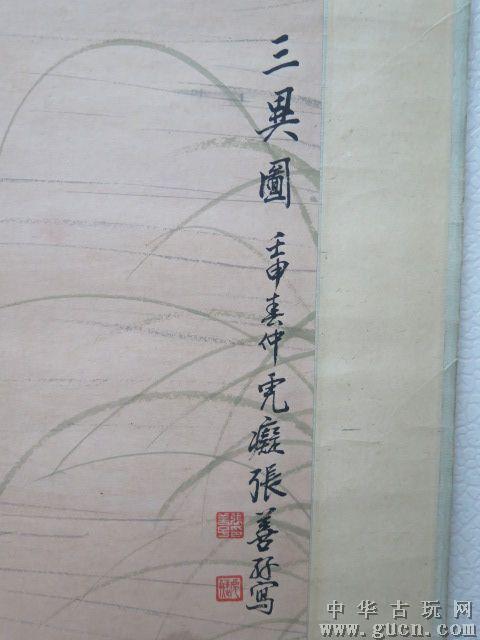 三異圖 壬申春仲虎癡張善孖寫
中华古玩网
www.gucn.com